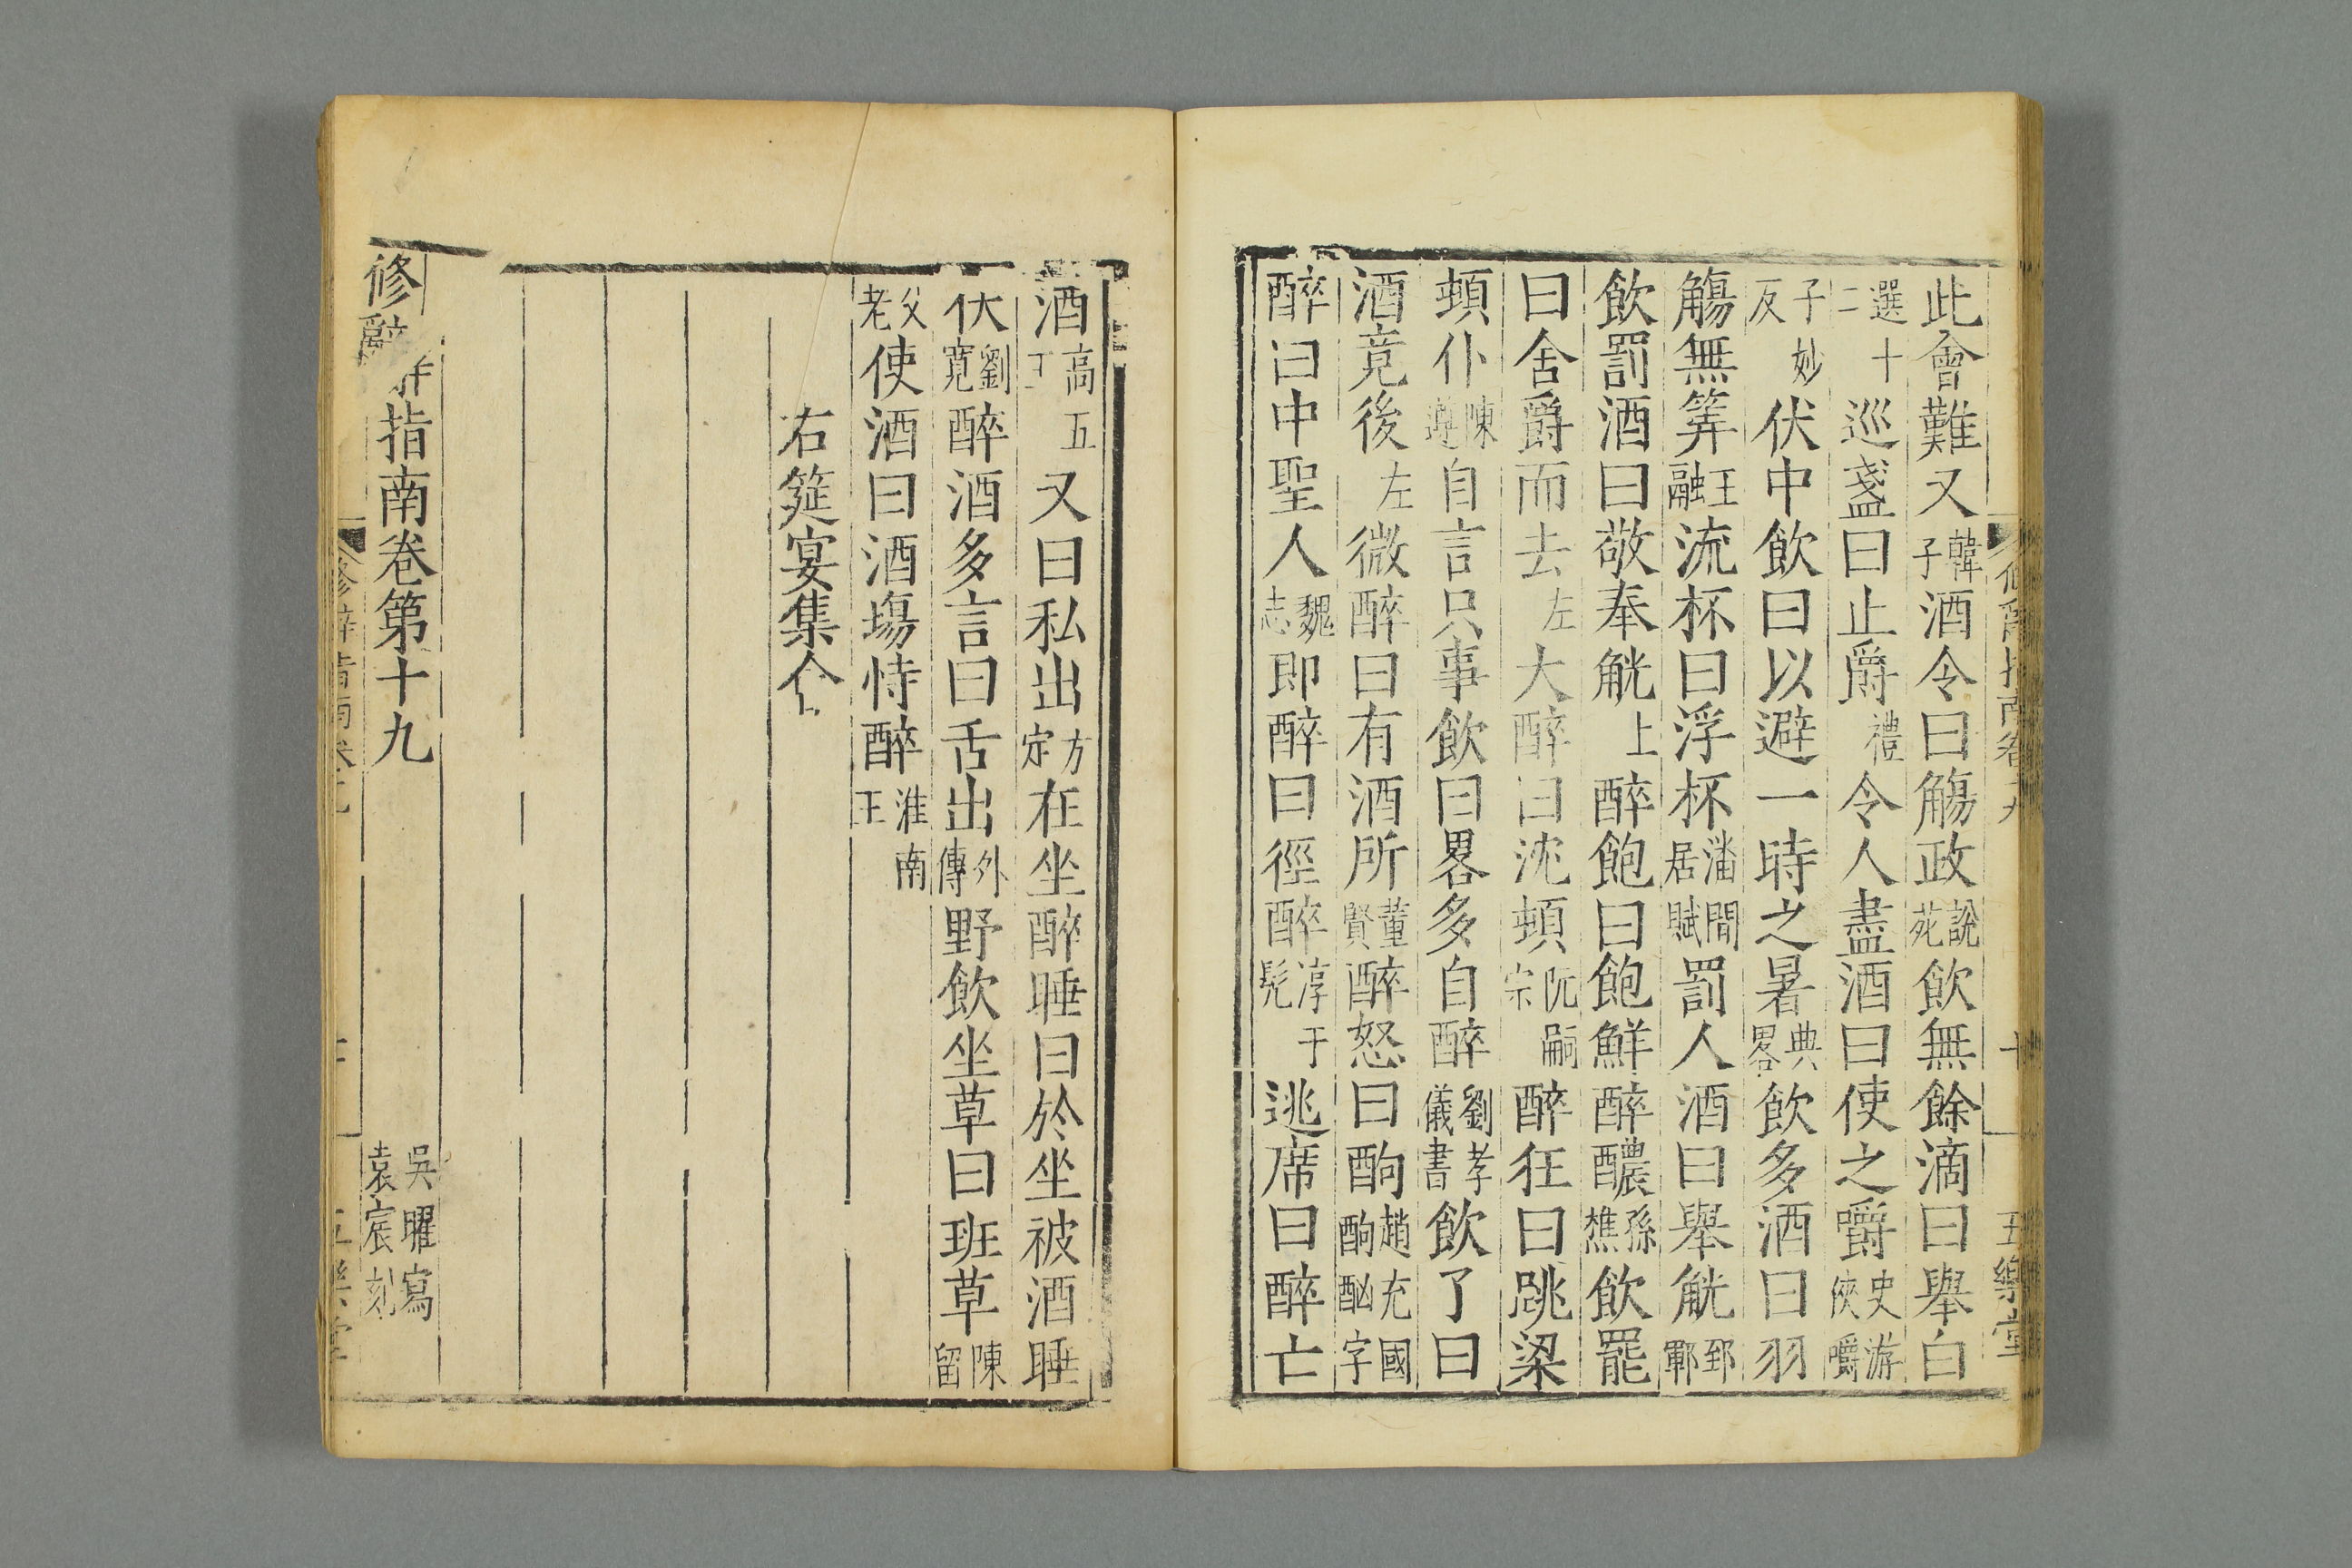 此會難又韓子酒令曰觴政說苑飲無餘滴曰舉白
選十二巡盞曰止爵禮令人盡酒曰使之釂史游俠釂
子妙反伏中飲曰以避一時之暑典畧飲多酒曰羽
觴無筭王融流杯曰浮杯潘閒居賦罰人酒曰舉觥郅鄆
飲罰酒曰敬奉觥上醉飽曰飽鮮醉醲孫樵飲罷
曰舍爵而去左大醉曰沈頓阮嗣宗醉狂曰跳梁
頓仆陳遵自言只事飲曰畧多自醉劉孝儀書飲了曰
酒竟後左微醉曰有酒所董賢醉怒曰酗趙充國酗酗字
醉曰中聖人魏志即醉曰徑醉淳于髡逃席曰醉亡
修辭指南卷十九
十
五樂堂
酒高五王又曰私出方定在坐醉睡曰於坐被酒睡
伏劉寬醉酒多言曰舌出外傳野飲坐草曰班草陳留
父老使酒曰酒塲恃醉淮南王
右筵宴集仝
修辭指南卷第十九
吳曜寫
袁宸刻